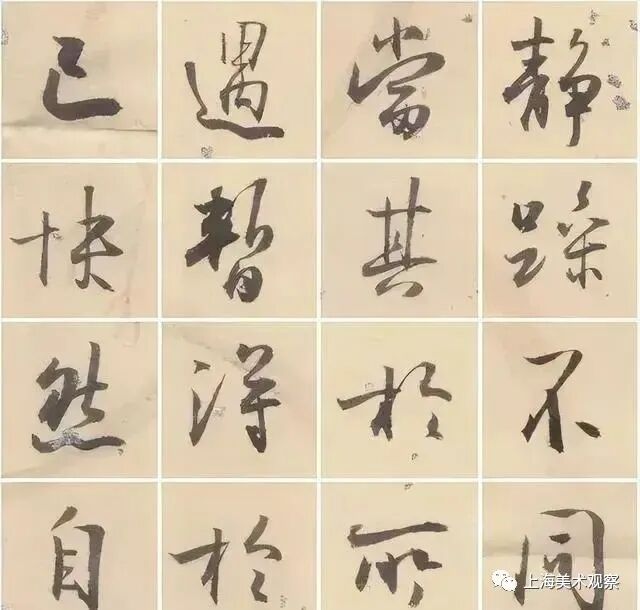 静躁不同
當其於所
遇暫得於
己快然自
上海美术观察